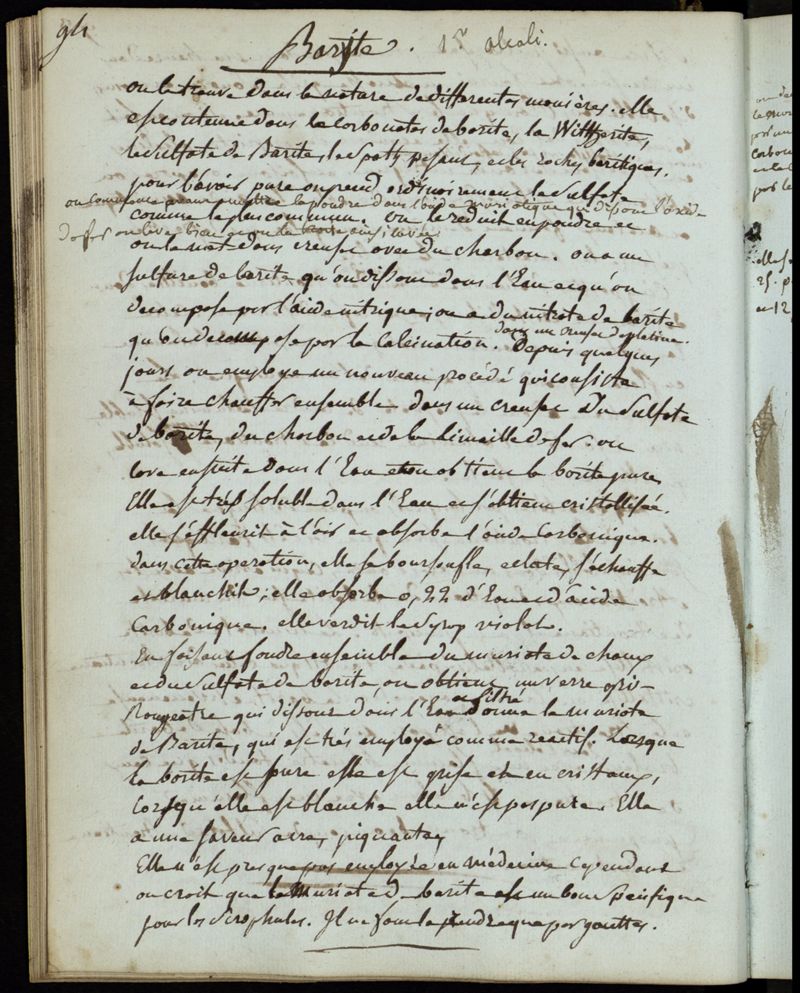 94
Baryte. 1er alcali.
on la trouve dans la nature de differentes manières. elle
est contenue dans les carbonates de barite, la Witherite,
le Sulfate de Barite, le Spath pesant, et les roches baritiques.
pour l'avoir pure on prend ordinairement le Sulfate
on commence par mettre la poudre dans l'acide muriatique qui dissout l'oxide
comme le plus commun. on le reduit en poudre et
de fer on lave bien et on la traite ensuite
on le met dans creuset avec du charbon. on a un
sulfure de barite qu'on dissout dans l'Eau et qu'on
decompose par l'acide nitrique; on a du nitrate de barite
dans un creuset de platine.
qu'on decompose par la Calcination. Depuis quelques
jours on employe un nouveau procédé qui consiste
à faire chauffer ensemble dans un creuset du Sulfate
de barite, du charbon et de la Limaille de fer. on
lave ensuite dans l'Eau et on obtient la barite pure
Elle est très soluble dans l'Eau et s'obtient cristallisée.
elle s'effleurit à l'air et absorbe l'acide Carbonique.
dans cette operation, elle se boursoufle, eclate, s'échauffe
et blanchit; elle absorbe 0,22 d'Eau et d'acide
Carbonique. elle verdit le Syrop violat.
En faisant fondre ensemble du muriate de chaux
et du Sulfate de barite, on obtient un verre gris-
et filtré
Rougeatre qui dissout dans l'Eau donne le muriate
de Barite, qui est très employé comme reactif. Lorsque
la barite est pure elle est grise et en cristaux,
lorsqu'elle est blanche elle n'est pas pure. Elle
a une saveur acre, piquante,
Elle n'est presque pas employée en médecine cependant
on croit que le Muriate de barite est un bon Specifique
pour les Scrophules. Il ne faut le prendre que par gouttes.